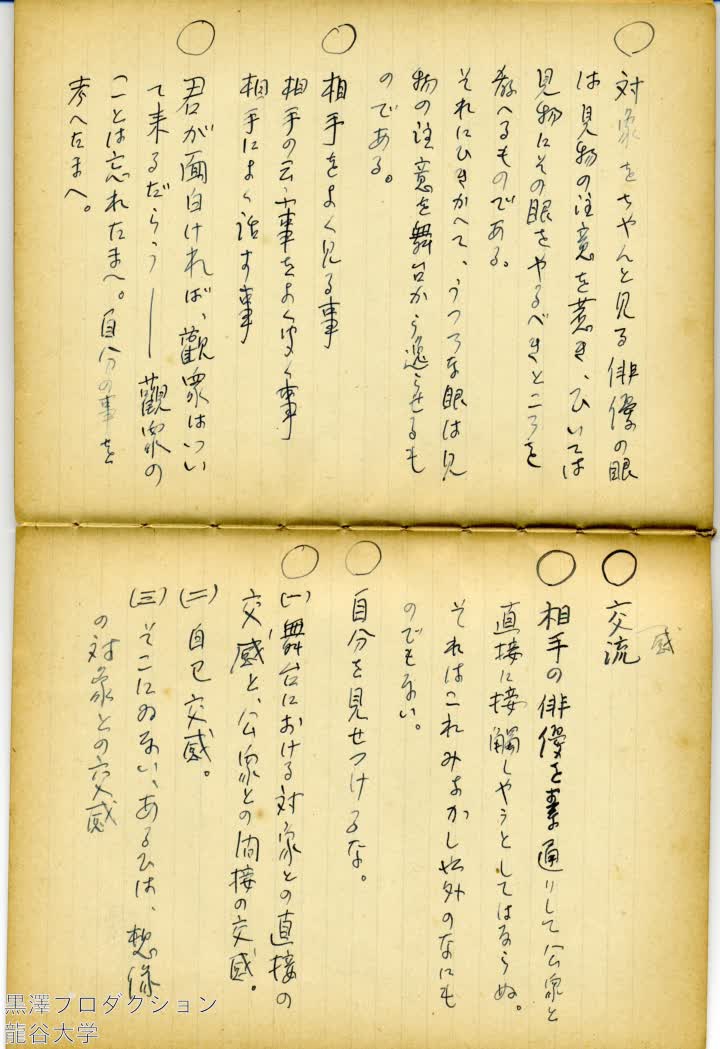 〇 対象をちやんと見る俳優の眼
は見物の注意を惹き、ひいては
見物にその眼をやるべきところを
教へるものである。
それにひきかへて、うつろな眼は見
物の注意を舞台から逸らせるも
のである。
〇 相手をよく見る事
相手の云ふ事をよく聞く事
相手によく話す事
〇 君が面白ければ、観衆はつい
て来るだらう――観衆の
ことは忘れたまへ。自分の事を
考へたまへ。
〇 交流
感
〇 相手の俳優を素通りして公衆と
直接に接触しやうとしてはならぬ。
それはこれみよがし以外のなにも
のでもない。
〇 自分を見せつけるな。
〇 (一)舞台における対象との直接の
交感と、公衆との間接の交感。
(二) 自己交感。
(三) そこにゐない、あるひは、想像
の対象との交感
黒澤プロダクション
龍谷大学